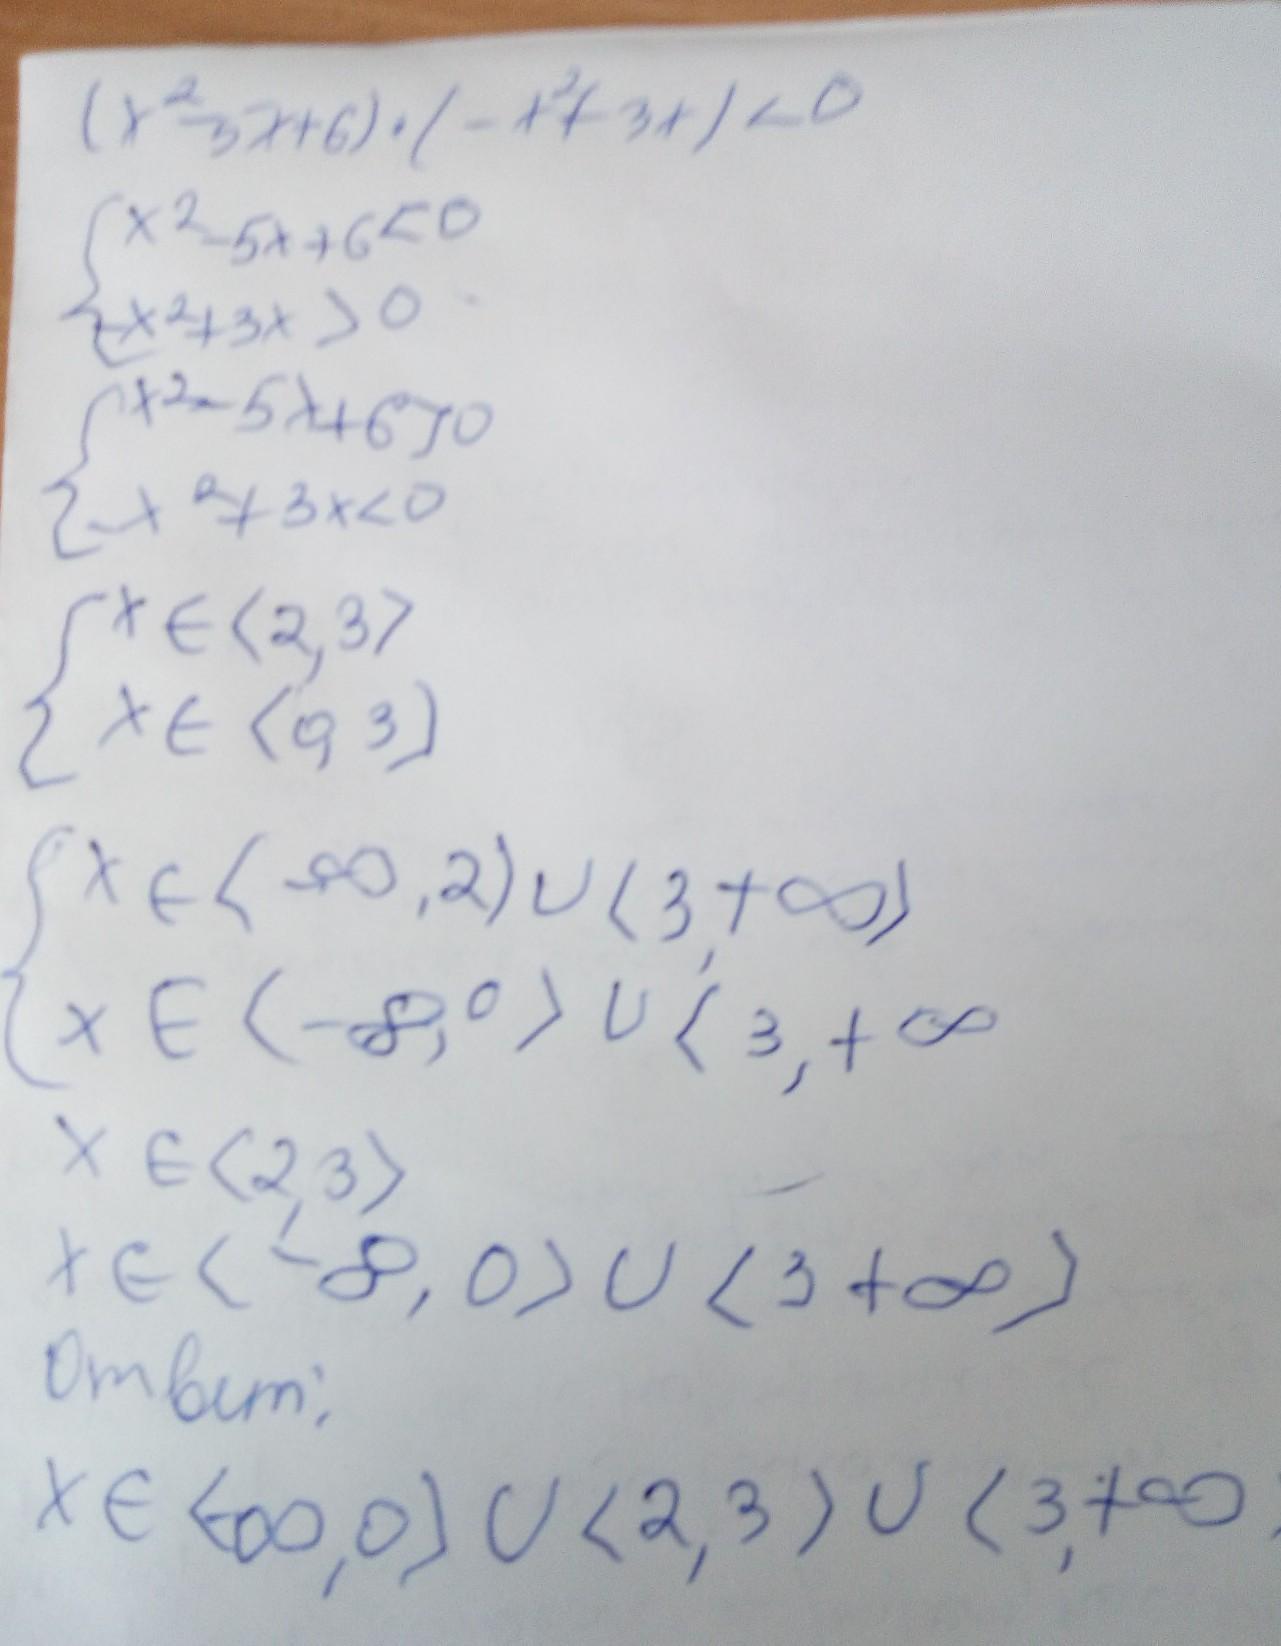 (x²-3x+6)·(-x²+3x)<0
{x²-5x+6<0
{-x²+3x>0
{x²-5x+6>0
{-x²+3x<0
{x∈⟨2,3⟩
{x∈⟨0,3)
{x∈⟨-∞,2)∪⟨3,+∞)
{x∈⟨-∞,0⟩∪⟨3,+∞
x∈⟨2,3⟩
x∈⟨-∞,0⟩∪⟨3+∞⟩
Ответ:
x∈⟨-∞,0)∪⟨2,3⟩∪⟨3,+∞)